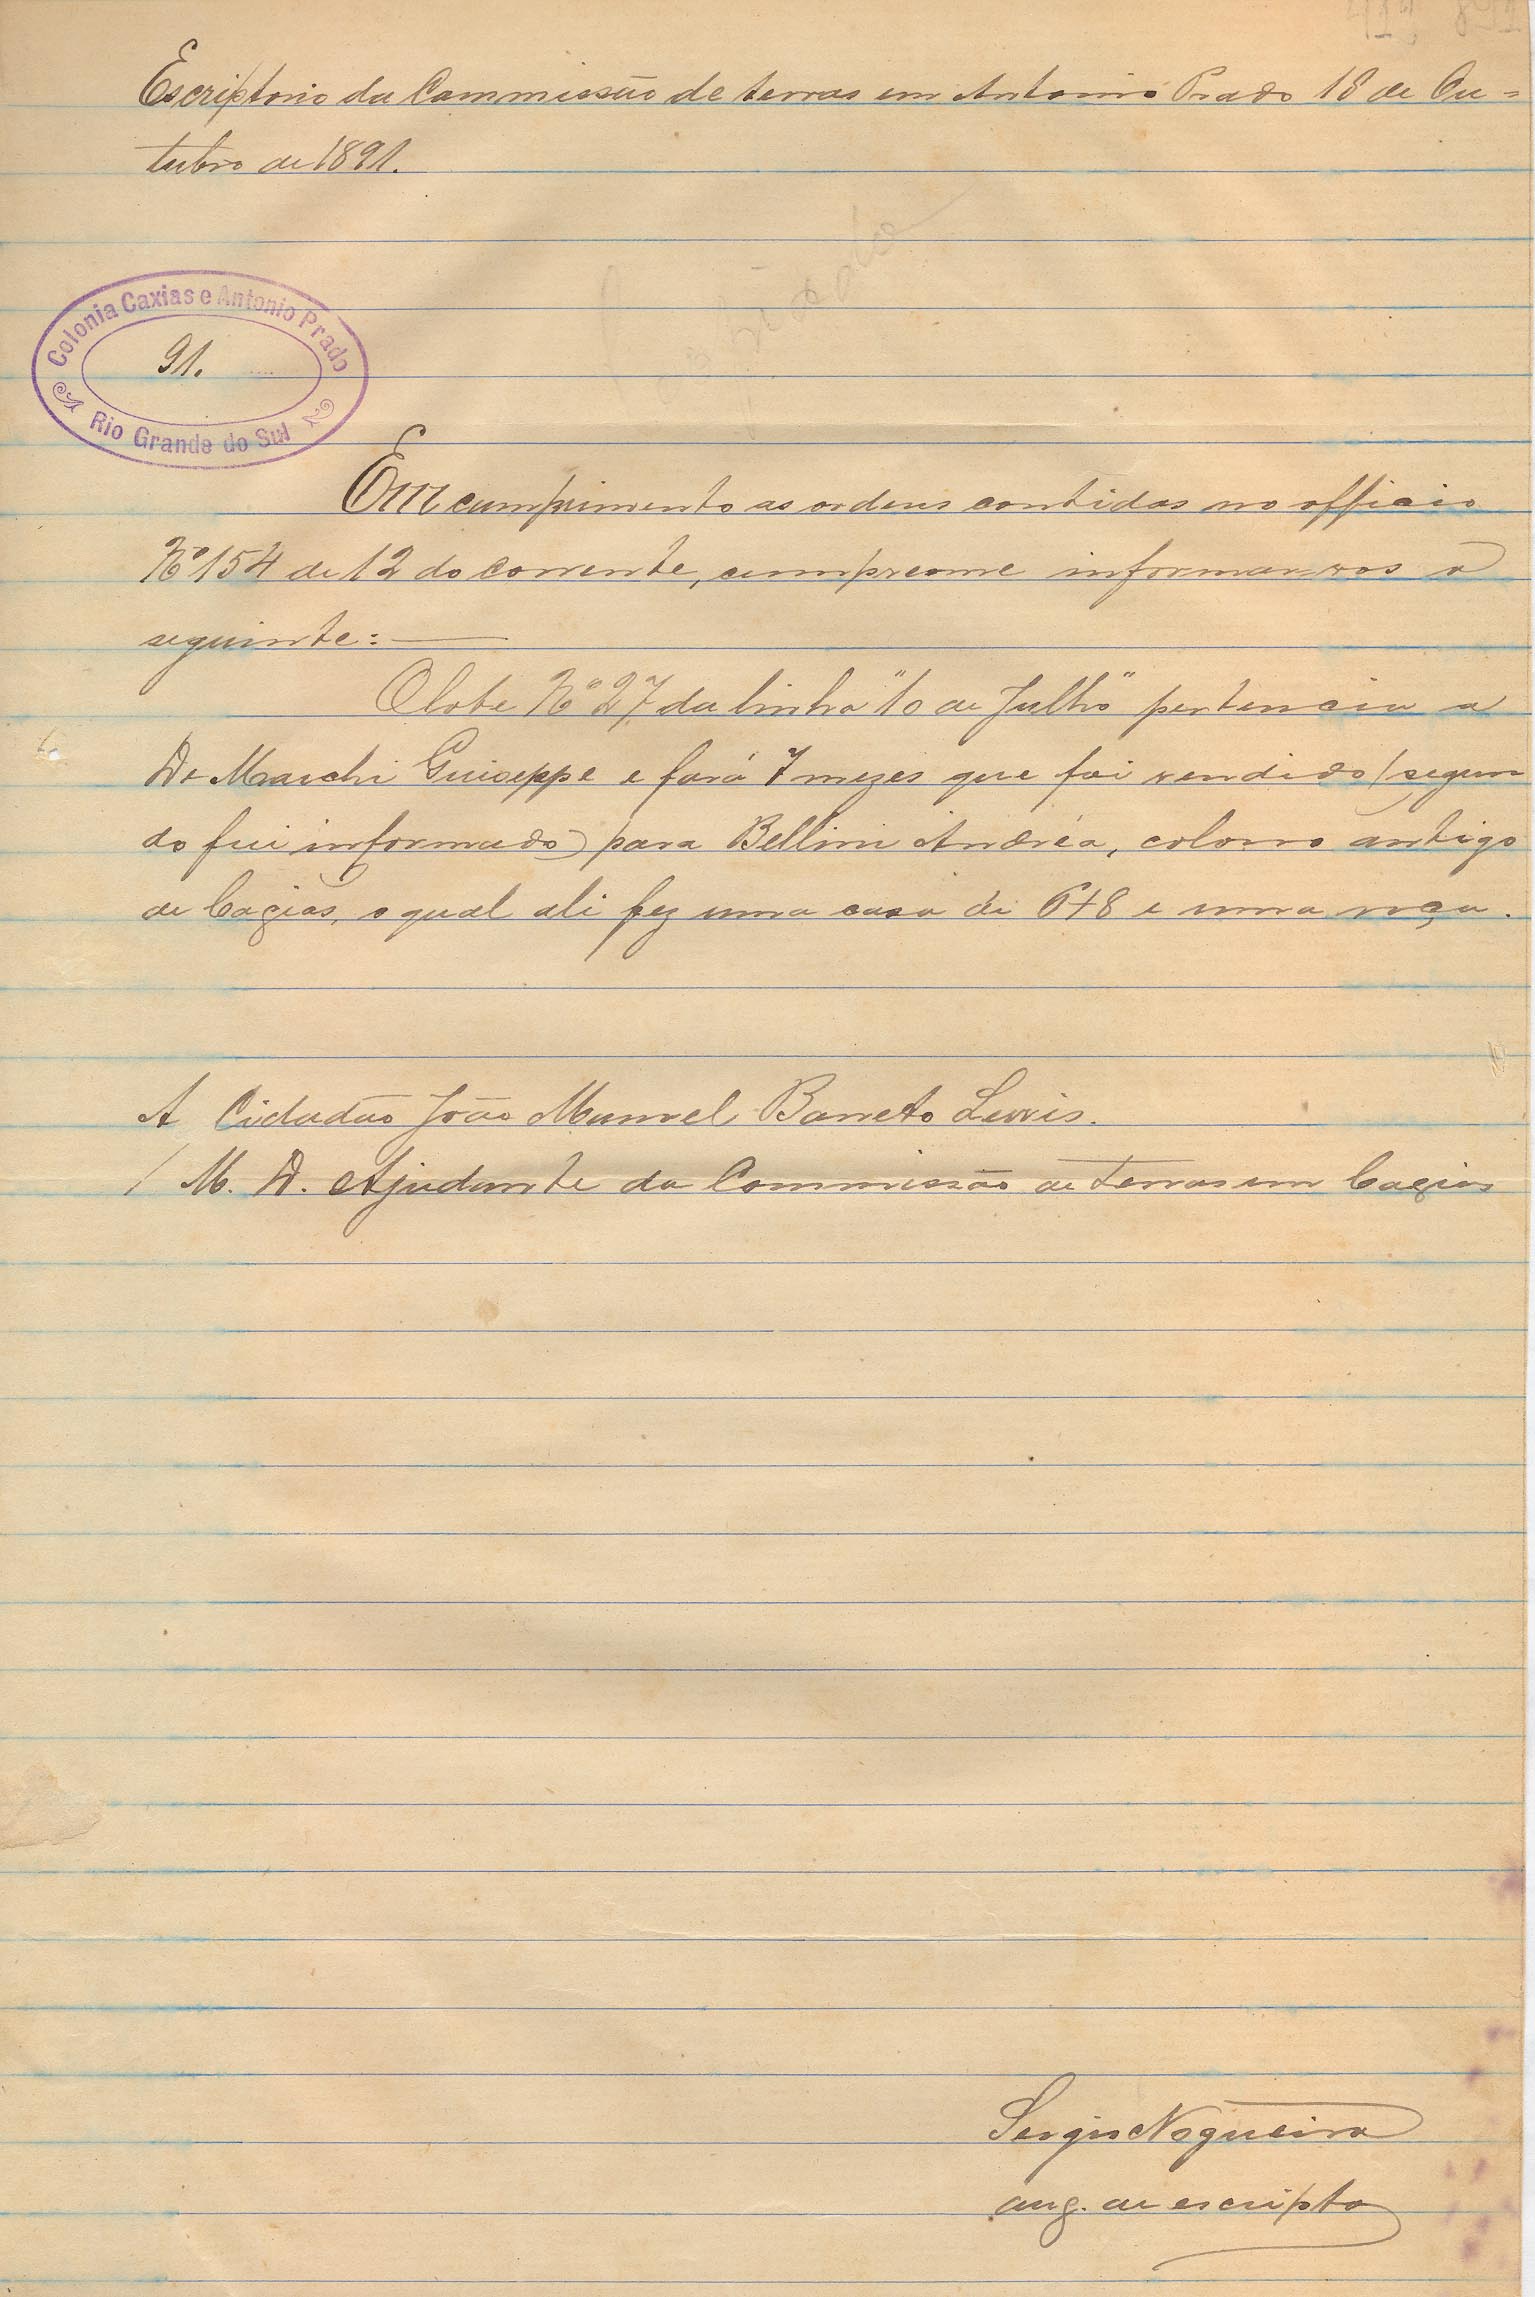 Escriptorio da Commissão de terras em Antonio Prado 18 de Ou=
tubro de 1891.
Colonia Caxias e Antonio Prado
91.
Rio Grande do Sul
Em cumprimento as ordens contidas no officio
Nº 154 de 12 do corrente, cumpreme informar-vos o
seguinte:
O lote Nº 27 da linha "10 de Julho" pertencia a
De Marchi Guiseppe e fará 7 mezes que foi vendido (segun
do fui informado) para Bellini Andréa, colono antigo
de Caxias, o qual ali fez uma casa de 6+8 e uma roça.
A Cidadão João Manuel Barreto
M. D. Ajudante da Commissão de terras em Caxias
Sergio Nogueira
aug. de escripto